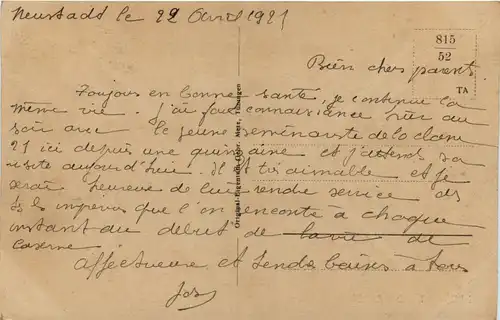 Neustadt le 22 Avril 1921
815
52
TA
Bien chers parents
Toujours en bonne santé, je continue la
même vie. J'ai fait connaissance hier au
soir avec le jeune séminariste de la classe
21 ici depuis une quinzaine et j'attends sa
visite aujourd'hui. Il est très aimable et je
serais heureux de lui rendre service dès
que l'on rencontre à chaque
instant au début de la vie de
caserne
Affectueux et tendres baisers à tous
Jos